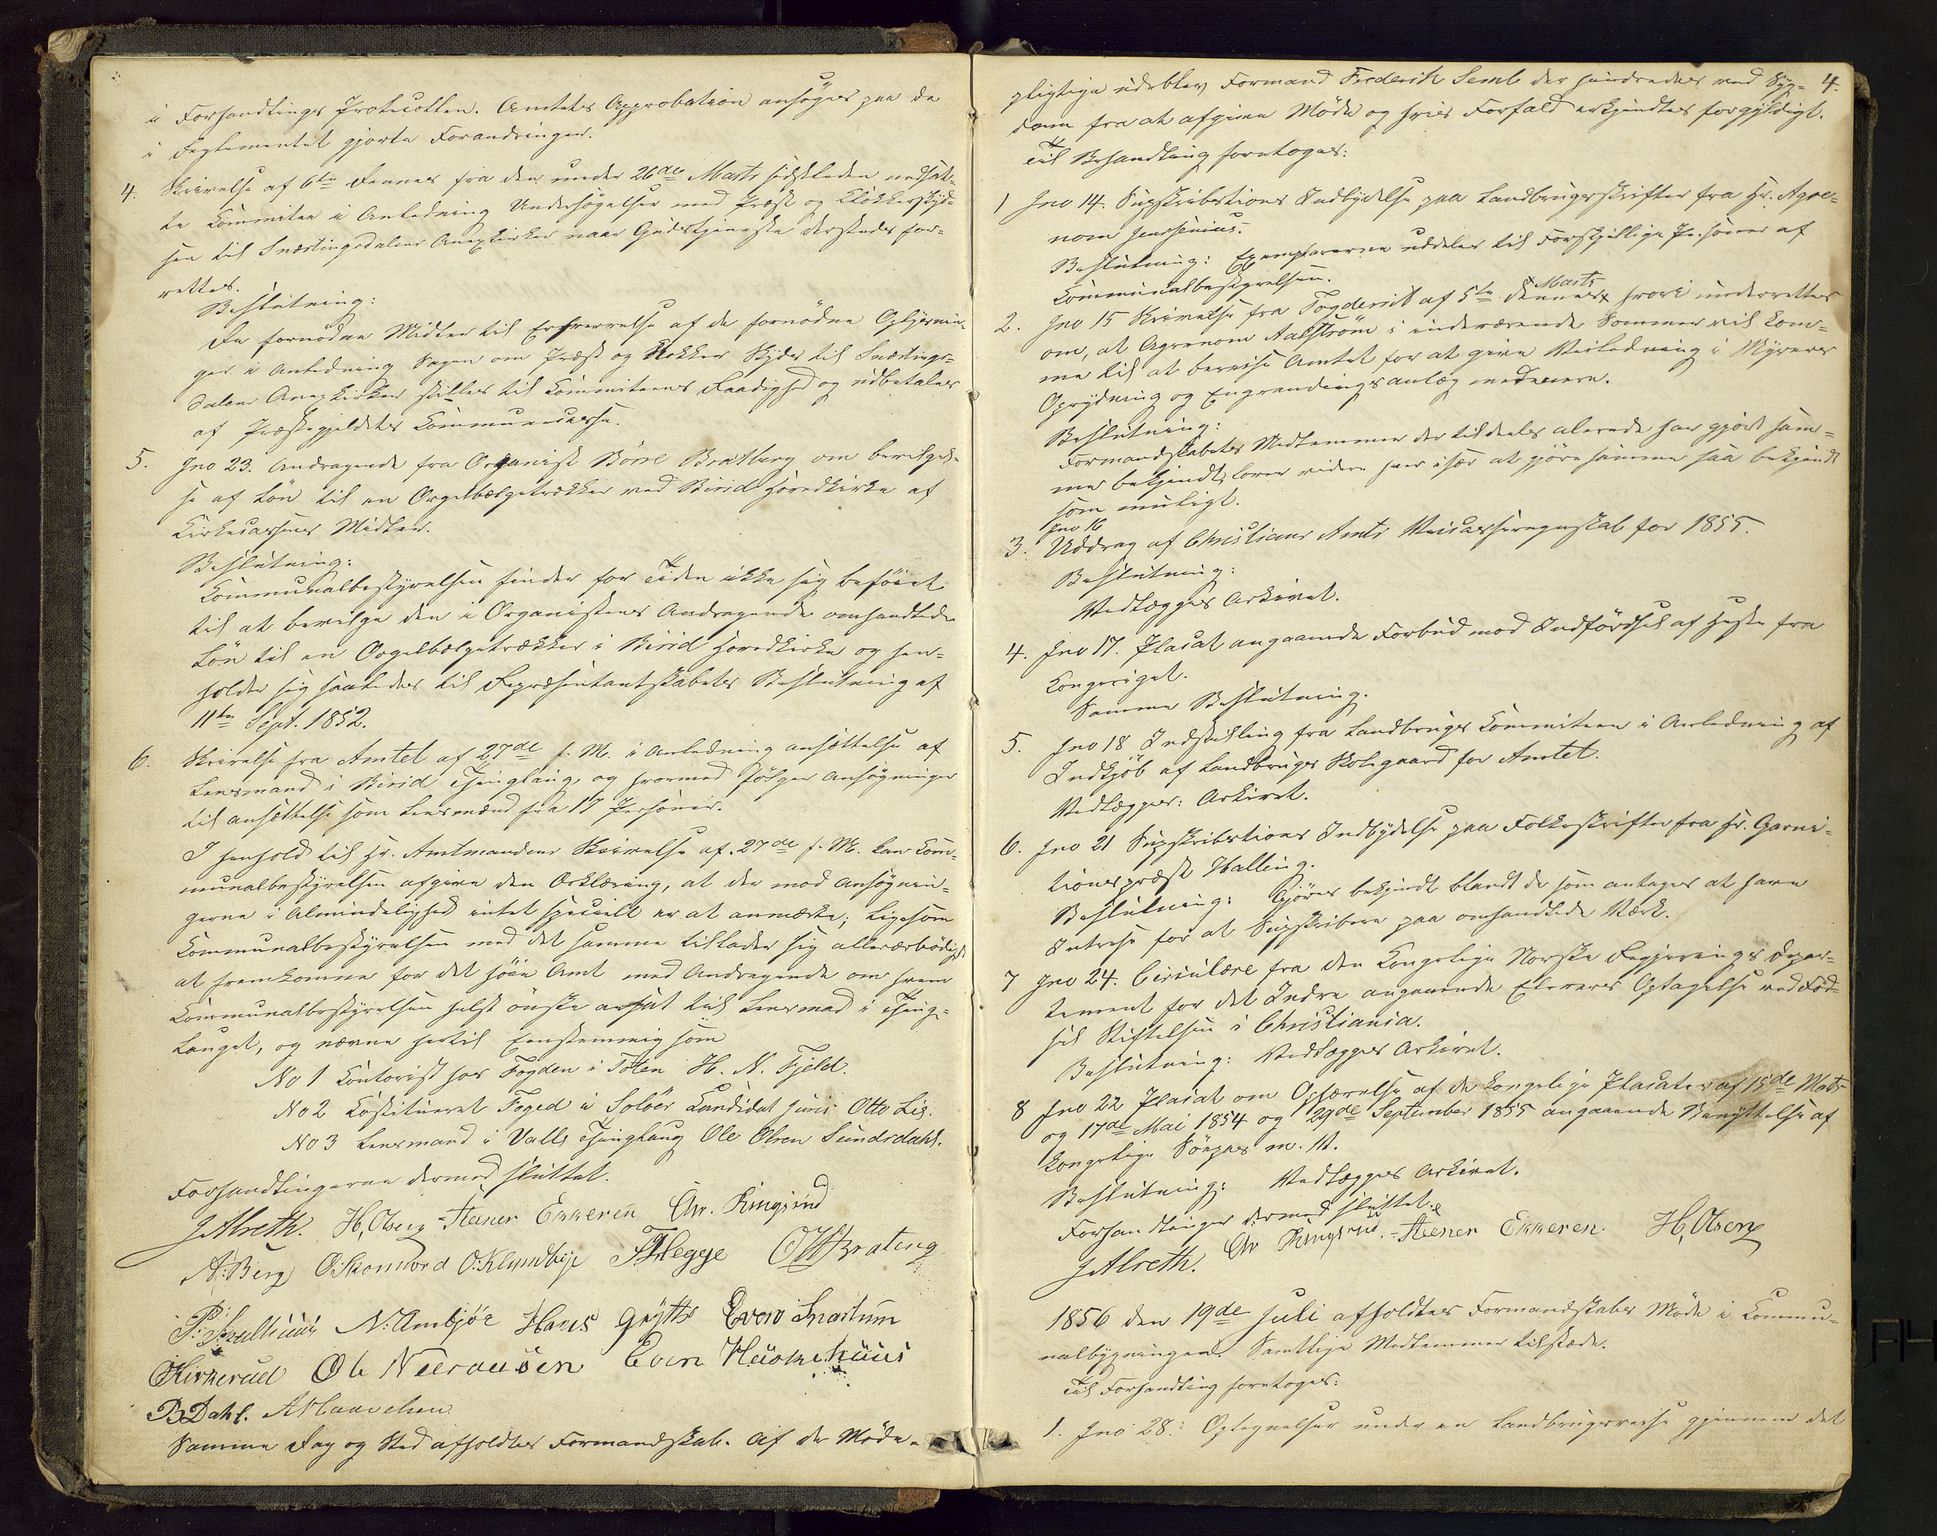 i Forhandlings Protocollen. Amtets Approbation ansøges paa de
i Reglementet gjorte Forandringer.
4. Skrivelse af 6te dennes fra den under 26de Marts sidstleden nedsat-
te Committee i Anledning Undersøgelser med Præst og Klokkerskyds
hen til Snertingdalens Anexkirke naar Gudstjeneste dersteds for-
rettes.
Beslutning:
De fornødne Midler til Erhvervelse af de fornødne Oplysnin-
ger i Anledning Sagen om Præst og Klokker Skyds til Snertings-
dalens Anexkirke stilles til Committeens Raadighed og udbetales
af Præstegjeldets Communecasse.
5. Jno 23. Andragende fra Organist Börre Bratberg om bevilgel-
se af Løn til en Orgelbælgetrækker ved Birid Hovedkirke af
Kirkecassens Midler.
Beslutning:
Communalbestyrelsen finder for Tiden ikke sig beføiet
til at bevilge den i Organistens Andragende omhandlede
Løn til en Orgelbælgetrækker i Birid Hovedkirke og hen-
holder sig saaledes til Repræsentantskabets Beslutning af
11te Sept. 1852.
6. Skrivelse fra Amtet af 27de f. M. i Anledning ansættelse af
Lensmand i Birid Thinglaug og hvormed følger Ansøgninger
til ansættelse som Lensmand fra 17 Personer.
I henhold til Hr. Amtmandens Skrivelse af 27de f. M. kan Com-
munalbestyrelsen afgive den Erklæring, at der mod Ansøgnin-
gerne i Almindelighed intet specielt er at anmærke; ligesom
Communalbestyrelsen med det samme tillader sig allerærbødigst
at fremkomme for det høie Amt med Andragende om hvem
Communalbestyrelsen helst ønske ansat til Lensmand i Thing-
lauget, og nævne hertil eenstemmig som
No 1 Contorist hos Fogden i Toten H. N. Fjeld.
No 2 Constitueret Foged i Soløer Candidat juris Otto Lie.
No 3 Lensmand i Valls Thinglaug Ole Olsen Sundsdahl.
Forhandlingerne dermed sluttet.
J Alreth. H. Oberg Steener Eekeren Chr. Ringsrud
N. Berg O Skomvord O. Klundbye T Hegge O H Brateng
N. Ambjör Hans Grytte Even Snartum
Kirkerud Ole Nilsausen Even Haakehuus
B Dahl. A Haavelsen
Samme Dag og Sted afholdtes Formandskab. Af de Møde-
4.
pligtige udeblev Formand Frederik Semb der hindredes ved Syg-
dom fra at afgive Møde og hvis Forfald erkjendtes forgyldigt.
Til Behandling foretoges:
1 Jno 14. Supskribtions Indbydelse paa Landbrugsskrifter fra Hr. Agro-
nom Jenssenius.
Beslutning: Exemplarerne uddeles til forskjellige Personer af
Communalbestyrelsen.
2. Jno 15 Skrivelse fra Fogderiet af 5te dennes Marts hvori underrettes
om, at Agronom Aalstrøm i indeværende Sommer vil kom-
me til at bereise Amtet for at give Veiledning i Myrers
Oprydning og Engvandingsanlæg med mere.
Beslutning:
Formandskabets Medlemmer der tildeels alerede har gjort sam-
me bekjendt, lover videre hver især at gjøre samme saa bekjendt
som muligt.
Jno 16
3. Uddrag af Christians Amts Veicasseregnskab for 1855.
Beslutning:
Vedlægges Arkivet.
4. Jno 17. Placat angaaende Forbud mod Indførdsel af Heste fra
Kongeriget.
Samme Beslutning.
5. Jno 18 Indstilling fra Landbrugs Committeen i Anledning af
Indkjøb af Landbrugs Skolegaard for Amtet.
Vedlægges: Arkivet.
6. Jno 21 Supskribtions Indbydelse paa Folkeskrifter fra Hr. Garni-
tionspræst Halling.
Beslutning: Gjøres bekjendt blandt de som antages at have
Intresse for at Supskribere paa omhandlede Værk.
7 Jno 24. Circulære fra den Kongelige Norske Regjerings Depar-
tement for det Indre angaaende Elevers Optagelse ved Fød-
sels Stiftelsen i Christiania.
Beslutning: Vedlægges Arkivet.
8 Jno 22 Placat om Ophævelse af de kongelige Placater af 15de Marts
og 17de Mai 1854 og 29de September 1855 angaaende Benyttelse af
kongelige m. V.
Beslutning: Vedlægges Arkivet.
Forhandlinger dermed sluttet.
J Alreth. Chr Ringsrud. Steener Eekeren. H. Olsen
1856 den 19de Juli afholdtes Formandskabs Møde i Commu-
nalbygningen. Samtlige Medlemmer tilstede.
Til Forhandling foretoges:
1. Jno 28: Optegnelser under en Landbrugsreise gjennem det